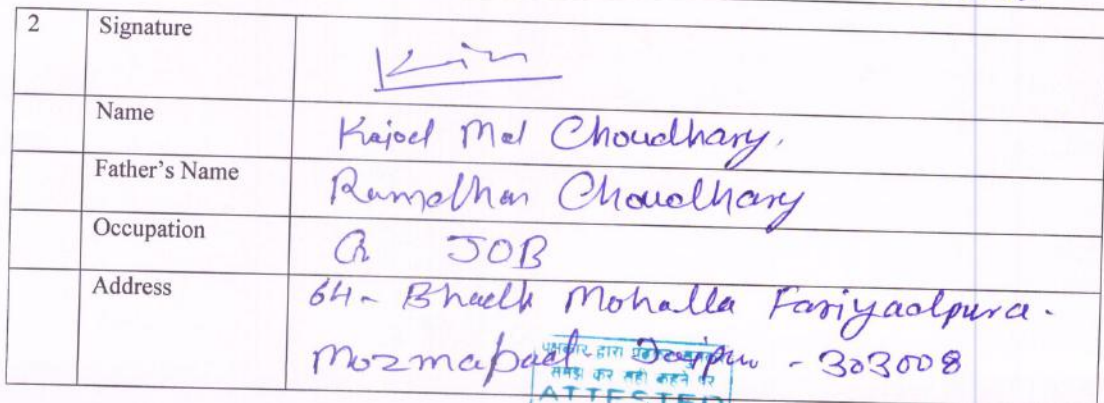 2 Signature
Name Kajod Mal Choudhary.
Father's Name Ramdhan Choudhary
Occupation JOB
Address 64- Mohalla Fariyadpura.
Mozmabad Jaipur - 303008
पक्षकार द्वारा
समझ कर सही कहने पर
ATTESTED